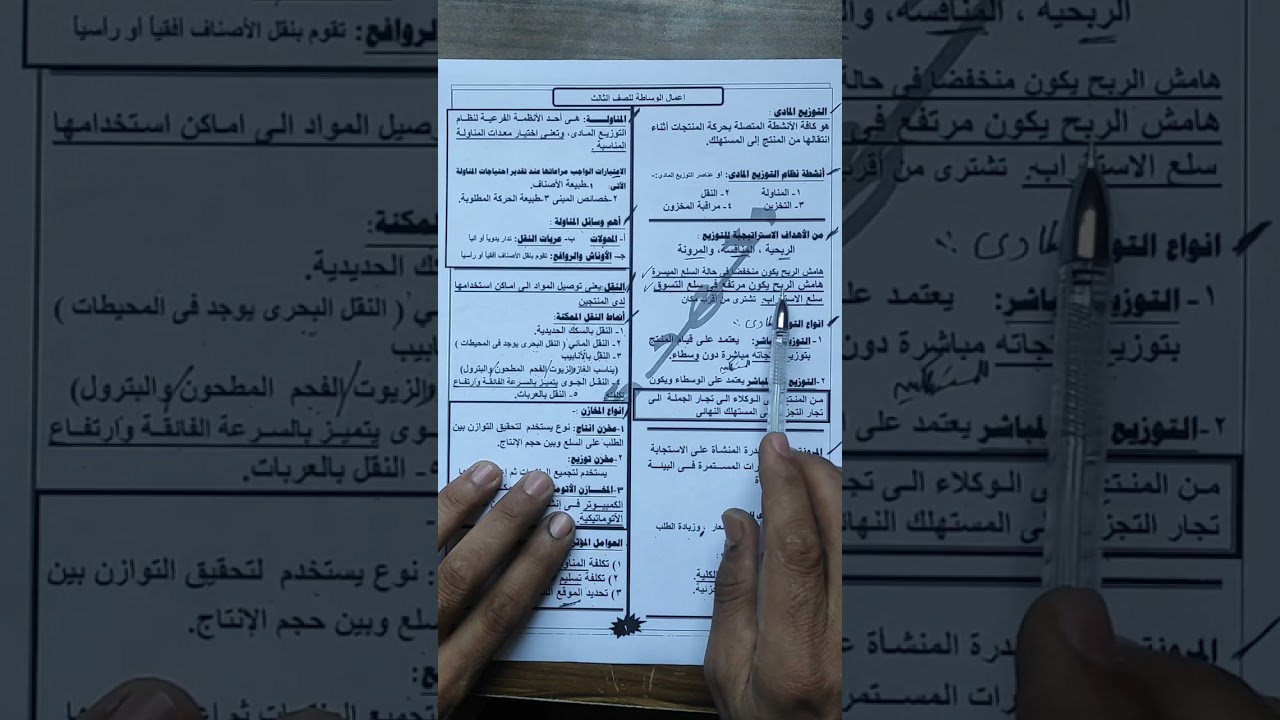 اعمال الوساطة للصف الثالث
التوزيع المادى :
هو كافة الأنشطة المتصلة بحركة المنتجات أثناء
انتقالها من المنتج إلى المستهلك.
أنشطة نظام التوزيع المادى: أو عناصر التوزيع المادى:-
١- المناولة ٢- النقل
٣- التخزين ٤- مراقبة المخزون
من الأهداف الاستراتيجية للتوزيع :
الربحية ، المنافسة، والمرونة
هامش الربح يكون منخفضا فى حالة السلع الميسرة
هامش الربح يكون مرتفع فى سلع التسوق
سلع تشترى من أقرب مكان
انواع
١- التوزيع يعتمد على قيام المنتج
بتوزيع مباشرة دون وسطاء.
٢- التوزيع يعتمد على الوسطاء ويكون
من الى الوكلاء الى تجار الجملة الى
تجار المستهلك النهائى
قدرة المنشأة على الاستجابة
المستمرة فى البيئة
، وزيادة الطلب
الكلية.
المناولة: هى أحد الأنظمة الفرعية لنظام
التوزيع المادى، وتعنى اختيار معدات المناولة
المناسبة .
الاعتبارات الواجب مراعاتها عند تقدير احتياجات المناولة
الآتى: ١- طبيعة الأصناف.
٢- خصائص المبنى ٣- طبيعة الحركة المطلوبة.
أهم وسائل المناولة :
أ- المحولات ب- عربات النقل: تدار يدويا أو آليا
جـ- الأوناش والروافع: تقوم بنقل الأصناف أفقياً أو رأسياً
النقل: يعنى توصيل المواد الى اماكن استخدامها
لدى المنتجين
أنماط النقل الممكنة:
١- النقل بالسكك الحديدية.
٢- النقل المائي ( النقل البحرى يوجد فى المحيطات )
٣- النقل بالأنابيب
(يناسب الغاز/الزيوت/الفحم المطحون/والبترول)
النقل الجوى يتميز بالسرعة الفائقة وارتفاع
٥- النقل بالعربات.
انواع المخازن :-
١- مخزن انتاج: نوع يستخدم لتحقيق التوازن بين
الطلب على السلع وبين حجم الإنتاج.
٢- مخزن توزيع:
يستخدم لتجميع
٣- المخازن
الكمبيوتر فى
الأتوماتيكية.
العوامل
١) تكلفة
٢) تكلفة تسليم
٣) تحديد الموقع
١